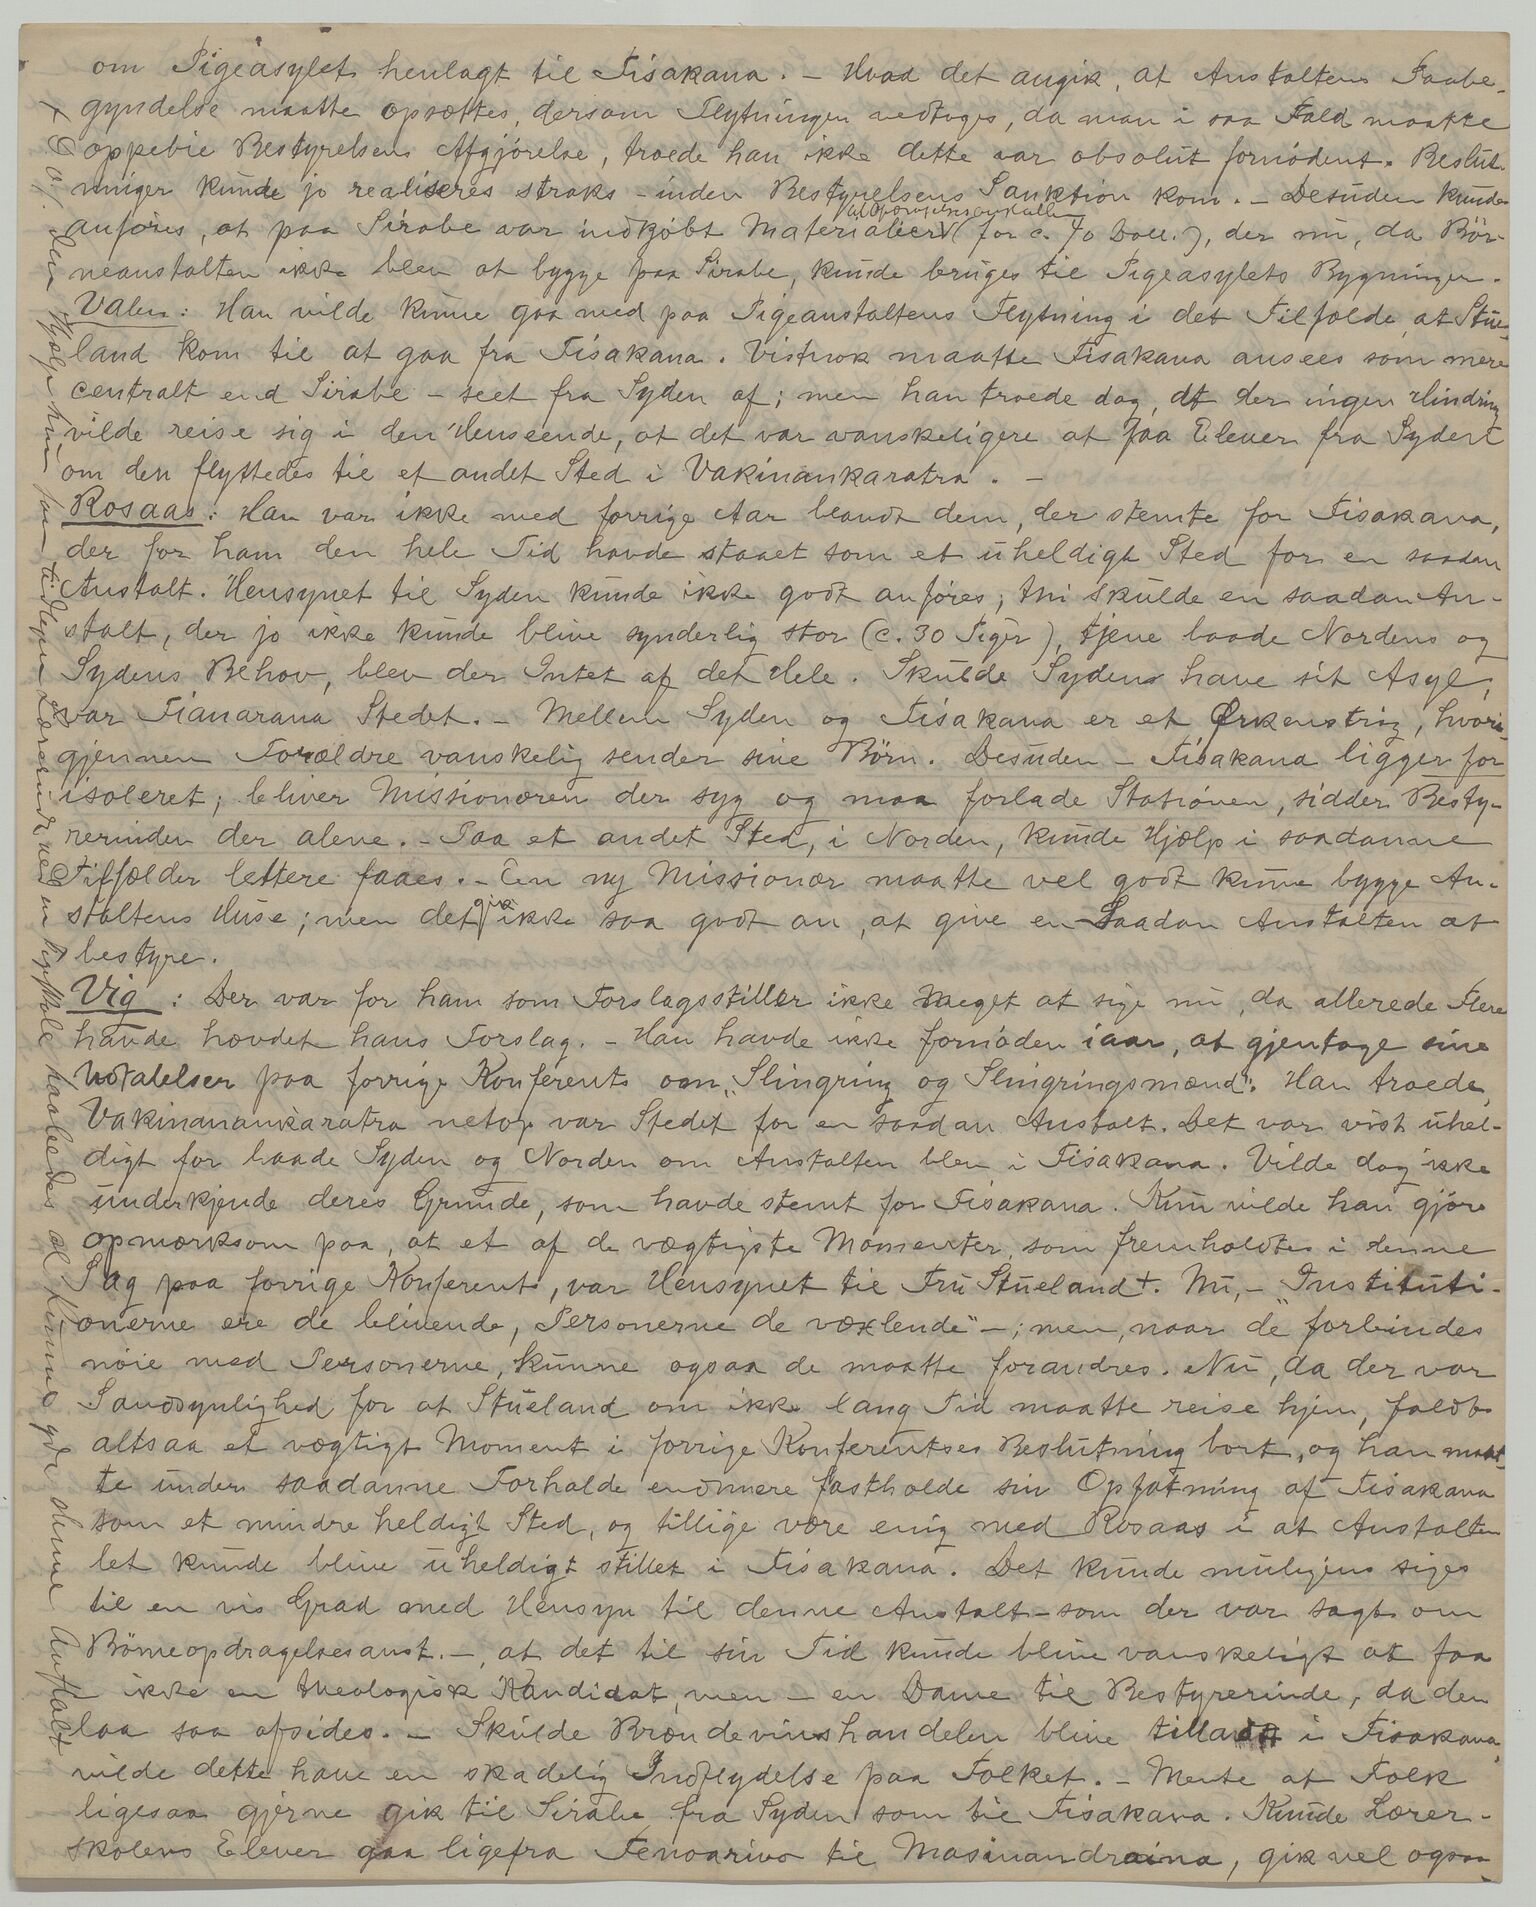 om Pigeasylet henlagt til Fisakana. – Hvad det angik, at Anstaltens Paabe-
gyndelse maatte opsættes, dersom Flytningen vedtoges, da man i saa Fald maatte
oppebie Bestyrelsens Afgjørelse, troede han ikke dette var absolut fornødent. Beslut-
ninger kunde jo realiseres straks – inden Bestyrelsens Sanktion kom. – Desuden kunde
anføres, at paa Sirabe var indkjøbt Materialier (for c. 70 Doll.), der nu, da Bør-
neanstalten ikke blev at bygge paa Sirabe, kunde bruges til Pigeasylets Bygninger.
Valen: Han vilde kunne gaa med paa Pigeanstaltens Flytning i det Tilfælde, at Stue-
land kom til at gaa fra Fisakana. Vistnok maatte Fisakana ansees som mere
centralt end Sirabe – seet fra Syden af; men han troede dog, at der ingen Hindring
vilde reise sig i den Henseende, at det var vanskeligere at faa Elever fra Syden
om den flyttedes til et andet Sted i Vakinankaratra. –
Rosaas: Han var ikke med forrige Aar blandt dem, der stemte for Fisakana,
der for ham den hele Tid havde staaet som et uheldigt Sted for en saadan
Anstalt. Hensynet til Syden kunde ikke godt anføres; thi skulde en saadan An-
stalt, der jo ikke kunde blive synderlig stor (c. 30 Piger), tjene baade Nordens og
Sydens Behov, blev der Intet af det Hele. Skulde Syden have sit Asyl,
var Fianarana Stedet. – Mellem Syden og Fisakana er et Ørkenstrig, hvori-
gjennem Forældre vanskelig sender sine Børn. Desuden – Fisakana ligger for
isoleret; bliver Missionæren der syg og maa forlade Stationen, sidder Besty-
rerinden der alene. – Paa et andet Sted, i Norden, kunde Hjælp i saadanne
Tilfælder lettere faaes. – En ny Missionær maatte vel godt kunne bygge An-
staltens Huse; men det gik ikke saa godt an, at give en saadan Anstalten at
bestyre.
Vig: Der var for ham som Forslagsstiller ikke meget at sige nu, da allerede Flere
havde hævdet hans Forslag. – Han havde ikke fornøden iaar, at gjentage sine
Udtalelser paa forrige Konferents om "Slingring og Slingringsmænd". Han troede,
Vakinanankaratra netop var Stedet for en saadan Anstalt. Det var vist uhel-
digt for baade Syden og Norden om Anstalten blev i Fisakana. Vilde dog ikke
underkjende deres Grunde, som havde stemt for Fisakana. Kun vilde han gjøre
opmærksom paa, at et af de vægtigste Momenter, som fremholdtes i denne
Sag paa forrige Konferents, var Hensynet til Fru Stueland +. Nu, – "Instituti-
onerne ere de blivende, Personerne de vexlende" –; men, naar de forbindes
nøie med Personerne, kunne ogsaa de maatte forandres. Nu, da der var
Sandsynlighed for at Stueland om ikke lang Tid maatte reise hjem, faldt
altsaa et vægtigt Moment i forrige Konferentses Beslutning bort, og han maat-
te under saadanne Forholde endmere fastholde sin Opfatning af Fisakana
som et mindre heldigt Sted, og tillige være enig med Rosaas i at Anstalten
let kunde blive uheldigt stillet i Fisakana. Det kunde muligens siges
til en vis Grad med Hensyn til denne Anstalt – som der var sagt om
Børneopdragelsesanst. –, at det til sin Tid kunde blive vanskeligt at faa
– ikke en theologisk Kandidat, men – en Dame til Bestyrerinde, da den
laa saa afsides. – Skulde Brændevinshandelen blive tilladt i Fisakana,
vilde dette have en skadelig Indflydelse paa Folket. – Mente at Folk
ligesaa gjerne gik til Sirabe fra Syden som til Fisakana. Kunde Lærer-
skolens Elever gaa ligefra Fenoarivo til Masinandraina, gik vel ogsaa